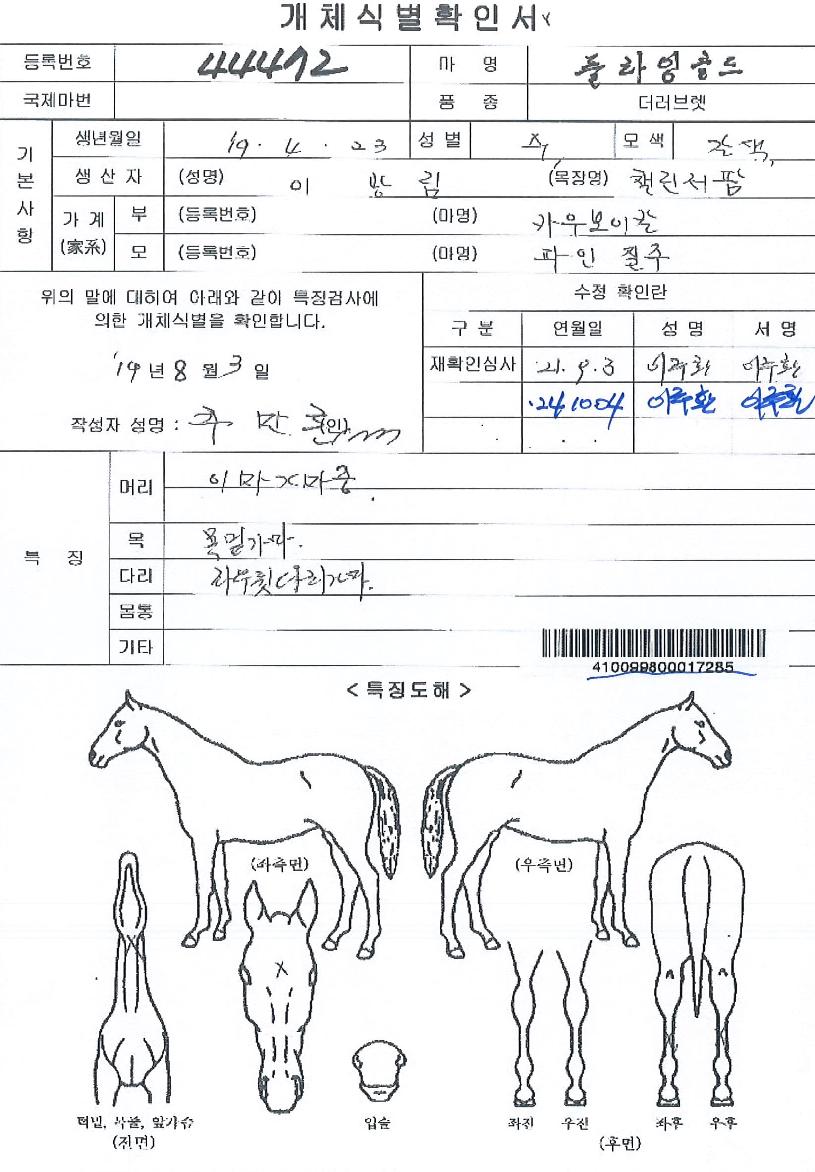 개체식별확인서
등록번호 44472 마 명 플라잉골드
국제마번 품 종 더러브렛
기본사항
생년월일 '19. 4. 23 성별 모색 갈색
생산자 (성명) 이 광 림 (목장명) 챌린저팜
가계 (家系) 부 (등록번호) (마명) 카우보이칼
모 (등록번호) (마명) 파인질주
위의 말에 대하여 아래와 같이 특징검사에
의한 개체식별을 확인합니다.
'19 년 8 월 3 일
작성자 성명 : (인)
수정 확인란
구 분 연월일 성 명 서 명
재확인심사 '21. 9. 3 이주환 이주환
'24 10 04 이주환 이주환
특 징
머리 이마가마중
목 목밑가마.
다리 좌우뒷다리가마.
몸통
기타
410099800017285
< 특징도해 >
(좌측면) (우측면)
턱밑, 목줄, 앞가슴
(전면)
입술
좌전 우전 좌후 우후
(후면)